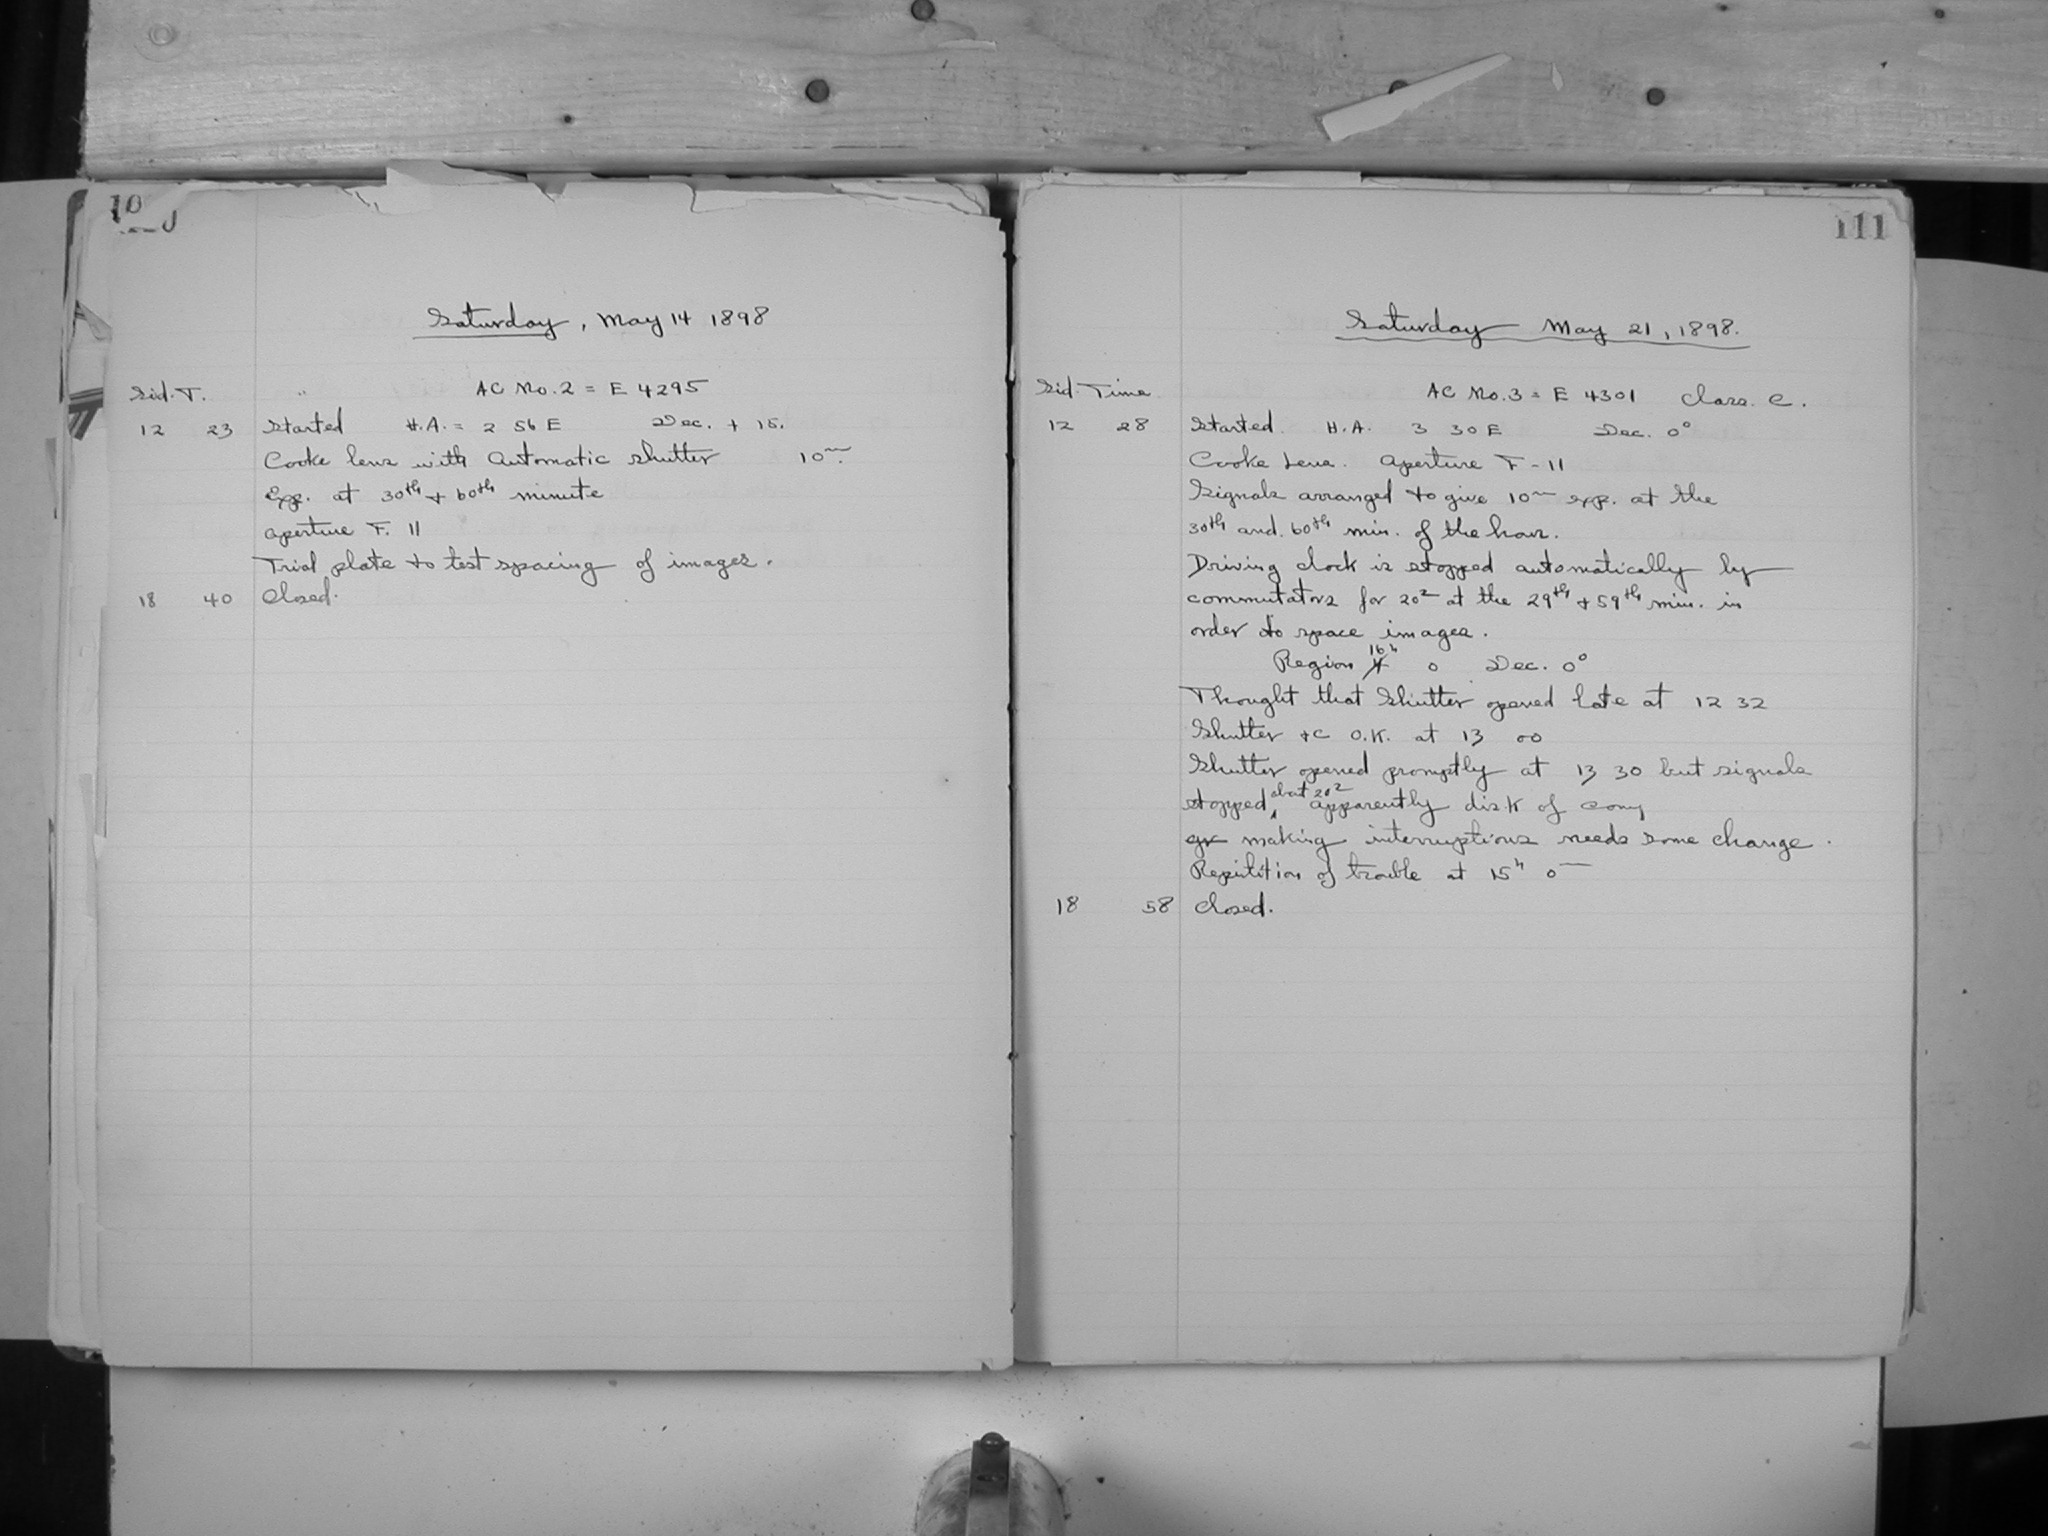 Saturday, May 14 1898
Sid. T. AC No. 2 = E 4295
12 23 Started H.A. = 2 56 E Dec. + 15.
Cooke lens with Automatic shutter 10m.
Exp. at 30th & 60th minute
aperture F. 11
Trial plate to test spacing of images.
18 40 Closed.
111
Saturday May 21, 1898.
Sid. Time AC No. 3 = E 4301 Class. C.
12 28 Started. H.A. 3 30 E Dec. 0°
Cooke Lens. Aperture F-11
Signals arranged to give 10m exp. at the
30th and 60th min. of the hour.
Driving clock is stopped automatically by
commutators for 20s at the 29th & 59th min. in
order to space images.
Region 16h 0 Dec. 0°
Thought that Shutter opened late at 12 32
Shutter &c O.K. at 13 00
Shutter opened promptly at 13 30 but signals
stopped about 20s apparently disk of
making interruptions needs some change.
Repitition of trouble at 15h 0m
18 58 Closed.